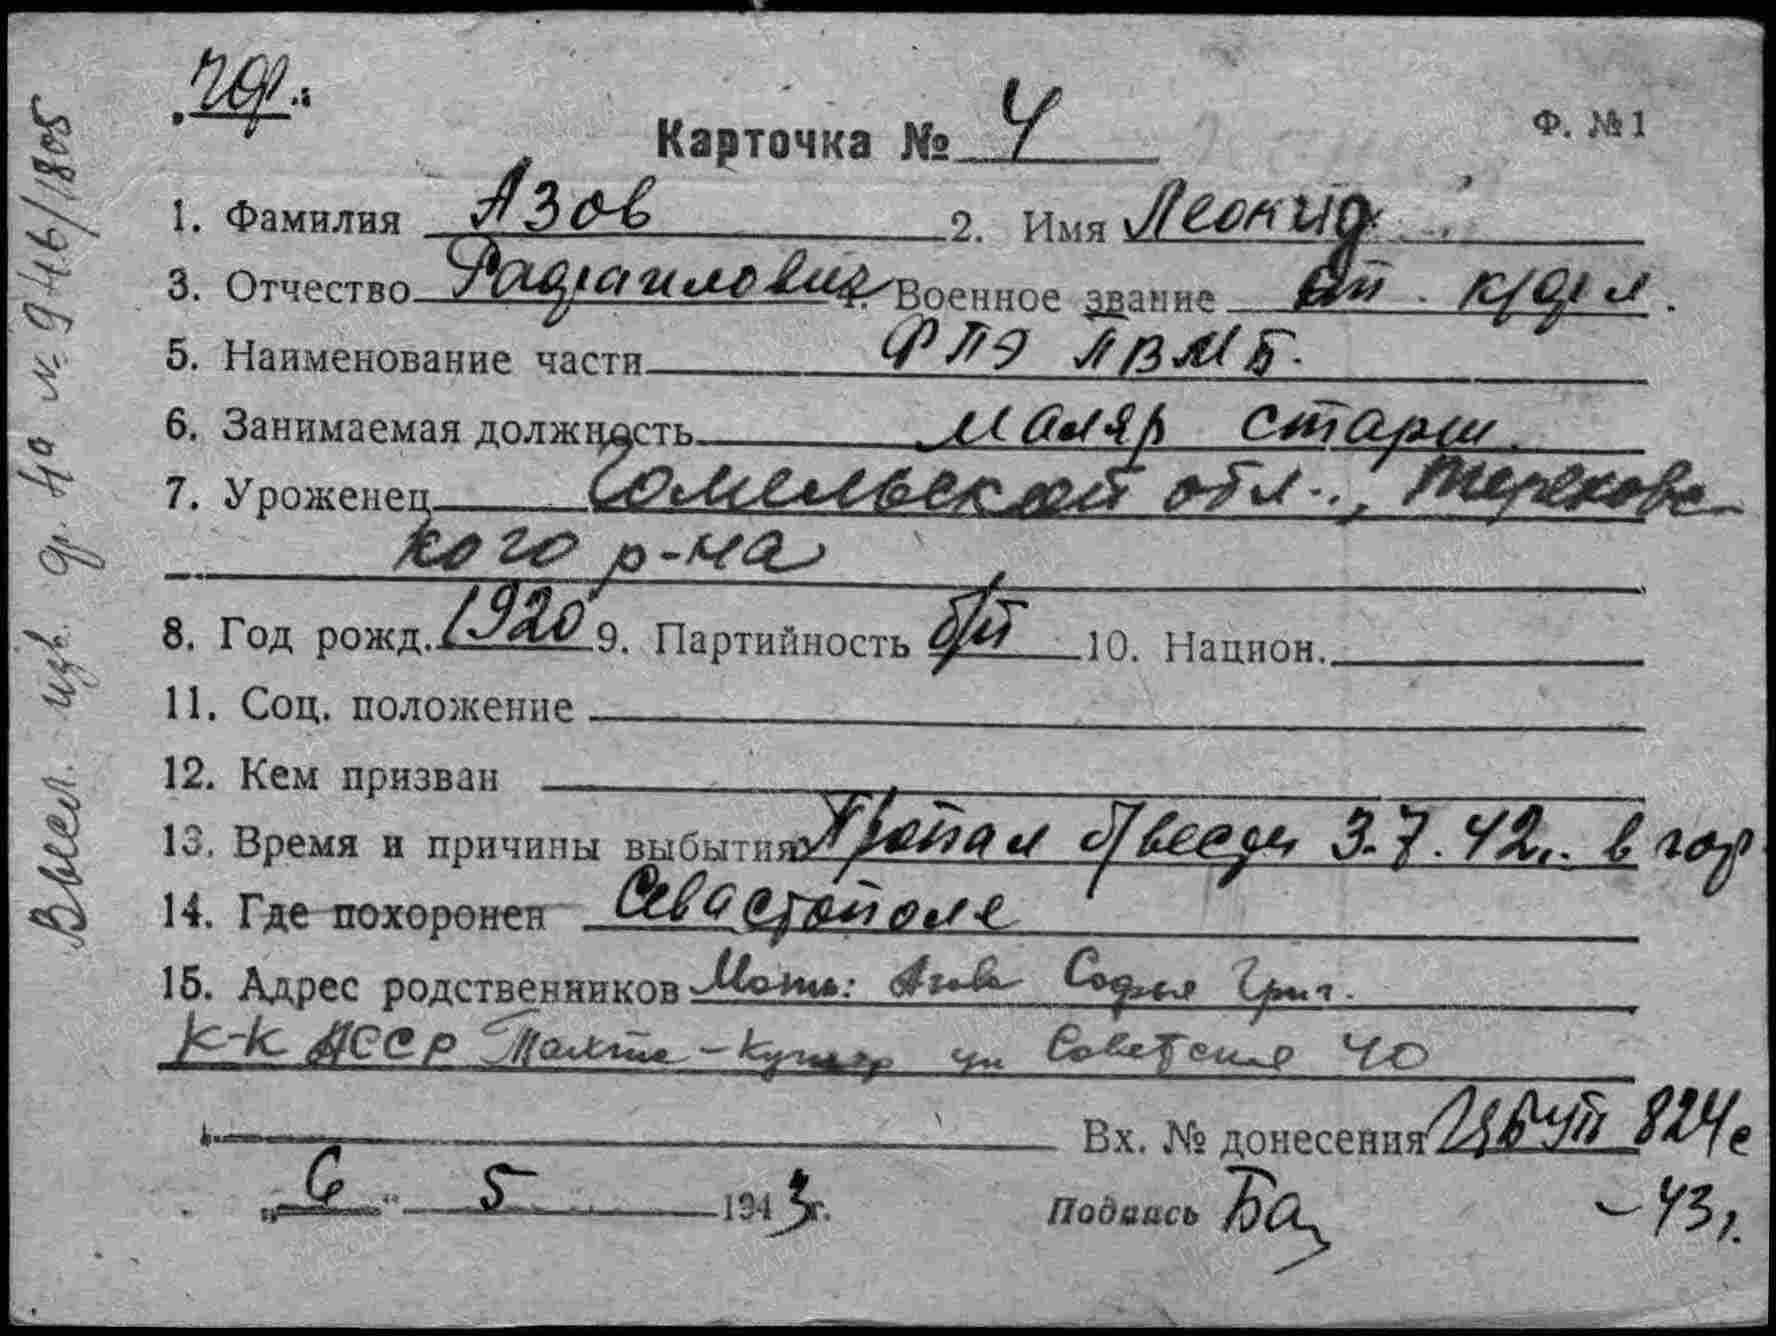 ЧФ.
Карточка № 4
Ф. № 1
1. Фамилия Азов 2. Имя Леонид
3. Отчество Рафаилович 4. Военное звание ст. к/фл.
5. Наименование части ФПЭ ПВМБ.
6. Занимаемая должность маляр старш.
7. Уроженец Гомельской обл., Тереховс
кого р-на
8. Год рожд. 1920 9. Партийность б/п 10. Национ.
11. Соц. положение
12. Кем призван
13. Время и причины выбытия Пропал б/вести 3.7.42г. в гор
14. Где похоронен Севастополе
15. Адрес родственников Мать: Азова Софья Григ.
К-К АССР Тахта-Купыр ул Советская 40
Вх. № донесения ЦБУП 824с
„6“ 5 1943г. Подпись Ба -43г.
Высл. изв. ф. 4а № 946/1805